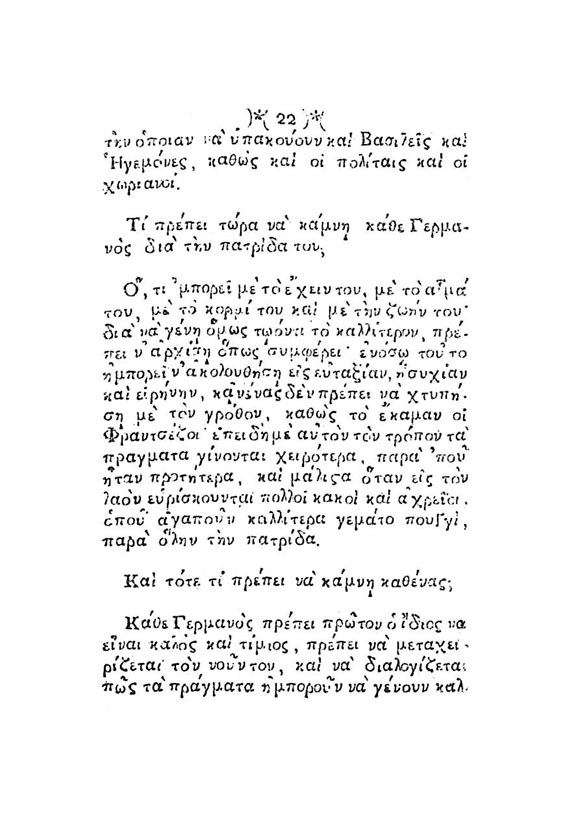 )*( 22 )*(
τὴν ὁποίαν να' ὑπακούουν καὶ Βασιλεῖς καὶ
Ἡγεμόνες, καθὼς καὶ οἱ πολίταις καὶ οἱ
χωριανοί.
Τί πρέπει τώρα να' κάμνῃ κάθε Γερμα-
νὸς δια' τὴν πατρίδα του;
Ὅ, τι 'μπορεῖ μὲ τὸ ἔχειν του, μὲ τὸ αἷμά
του, μὲ τὸ κορμί του καὶ μὲ τὴν ζωήν του·
δια' να' γένῃ ὅμως τωόντι τὸ καλλίτερον, πρέ-
πει ν' ἀρχίσῃ ὅπως συμφέρει· ἐνόσῳ τοῦτο
ἠμπορεῖ ν' ἀκολουθήσῃ εἰς εὐταξίαν, ἡσυχίαν
καὶ εἰρήνην, κανένας δὲν πρέπει να' χτυπή-
σῃ μὲ τὸν γρόθον, καθὼς τὸ ἔκαμαν οἱ
Φραντσέζοι· ἐπειδὴ μὲ αὐτὸν τὸν τρόπον τα'
πράγματα γίνονται χειρότερα, παρα' 'ποῦ
ἦταν πρωτήτερα, καὶ μάλιϛα ὅταν εἰς τὸν
λαὸν εὑρίσκουνται πολλοὶ κακοὶ καὶ ἀχρεῖοι,
ὁποῦ ἀγαποῦν καλλίτερα γεμάτο πουγγὶ,
παρα' ὅλην τὴν πατρίδα.
Καὶ τότε τί πρέπει να' κάμνῃ καθένας;
Κάθε Γερμανὸς πρέπει πρῶτον ὁ ἴδιος να
εἶναι καλὸς καὶ τίμιος, πρέπει να' μεταχει-
ρίζεται τὸν νοῦν του, καὶ να' διαλογίζεται
πῶς τα' πράγματα ἠμποροῦν να' γένουν καλ-